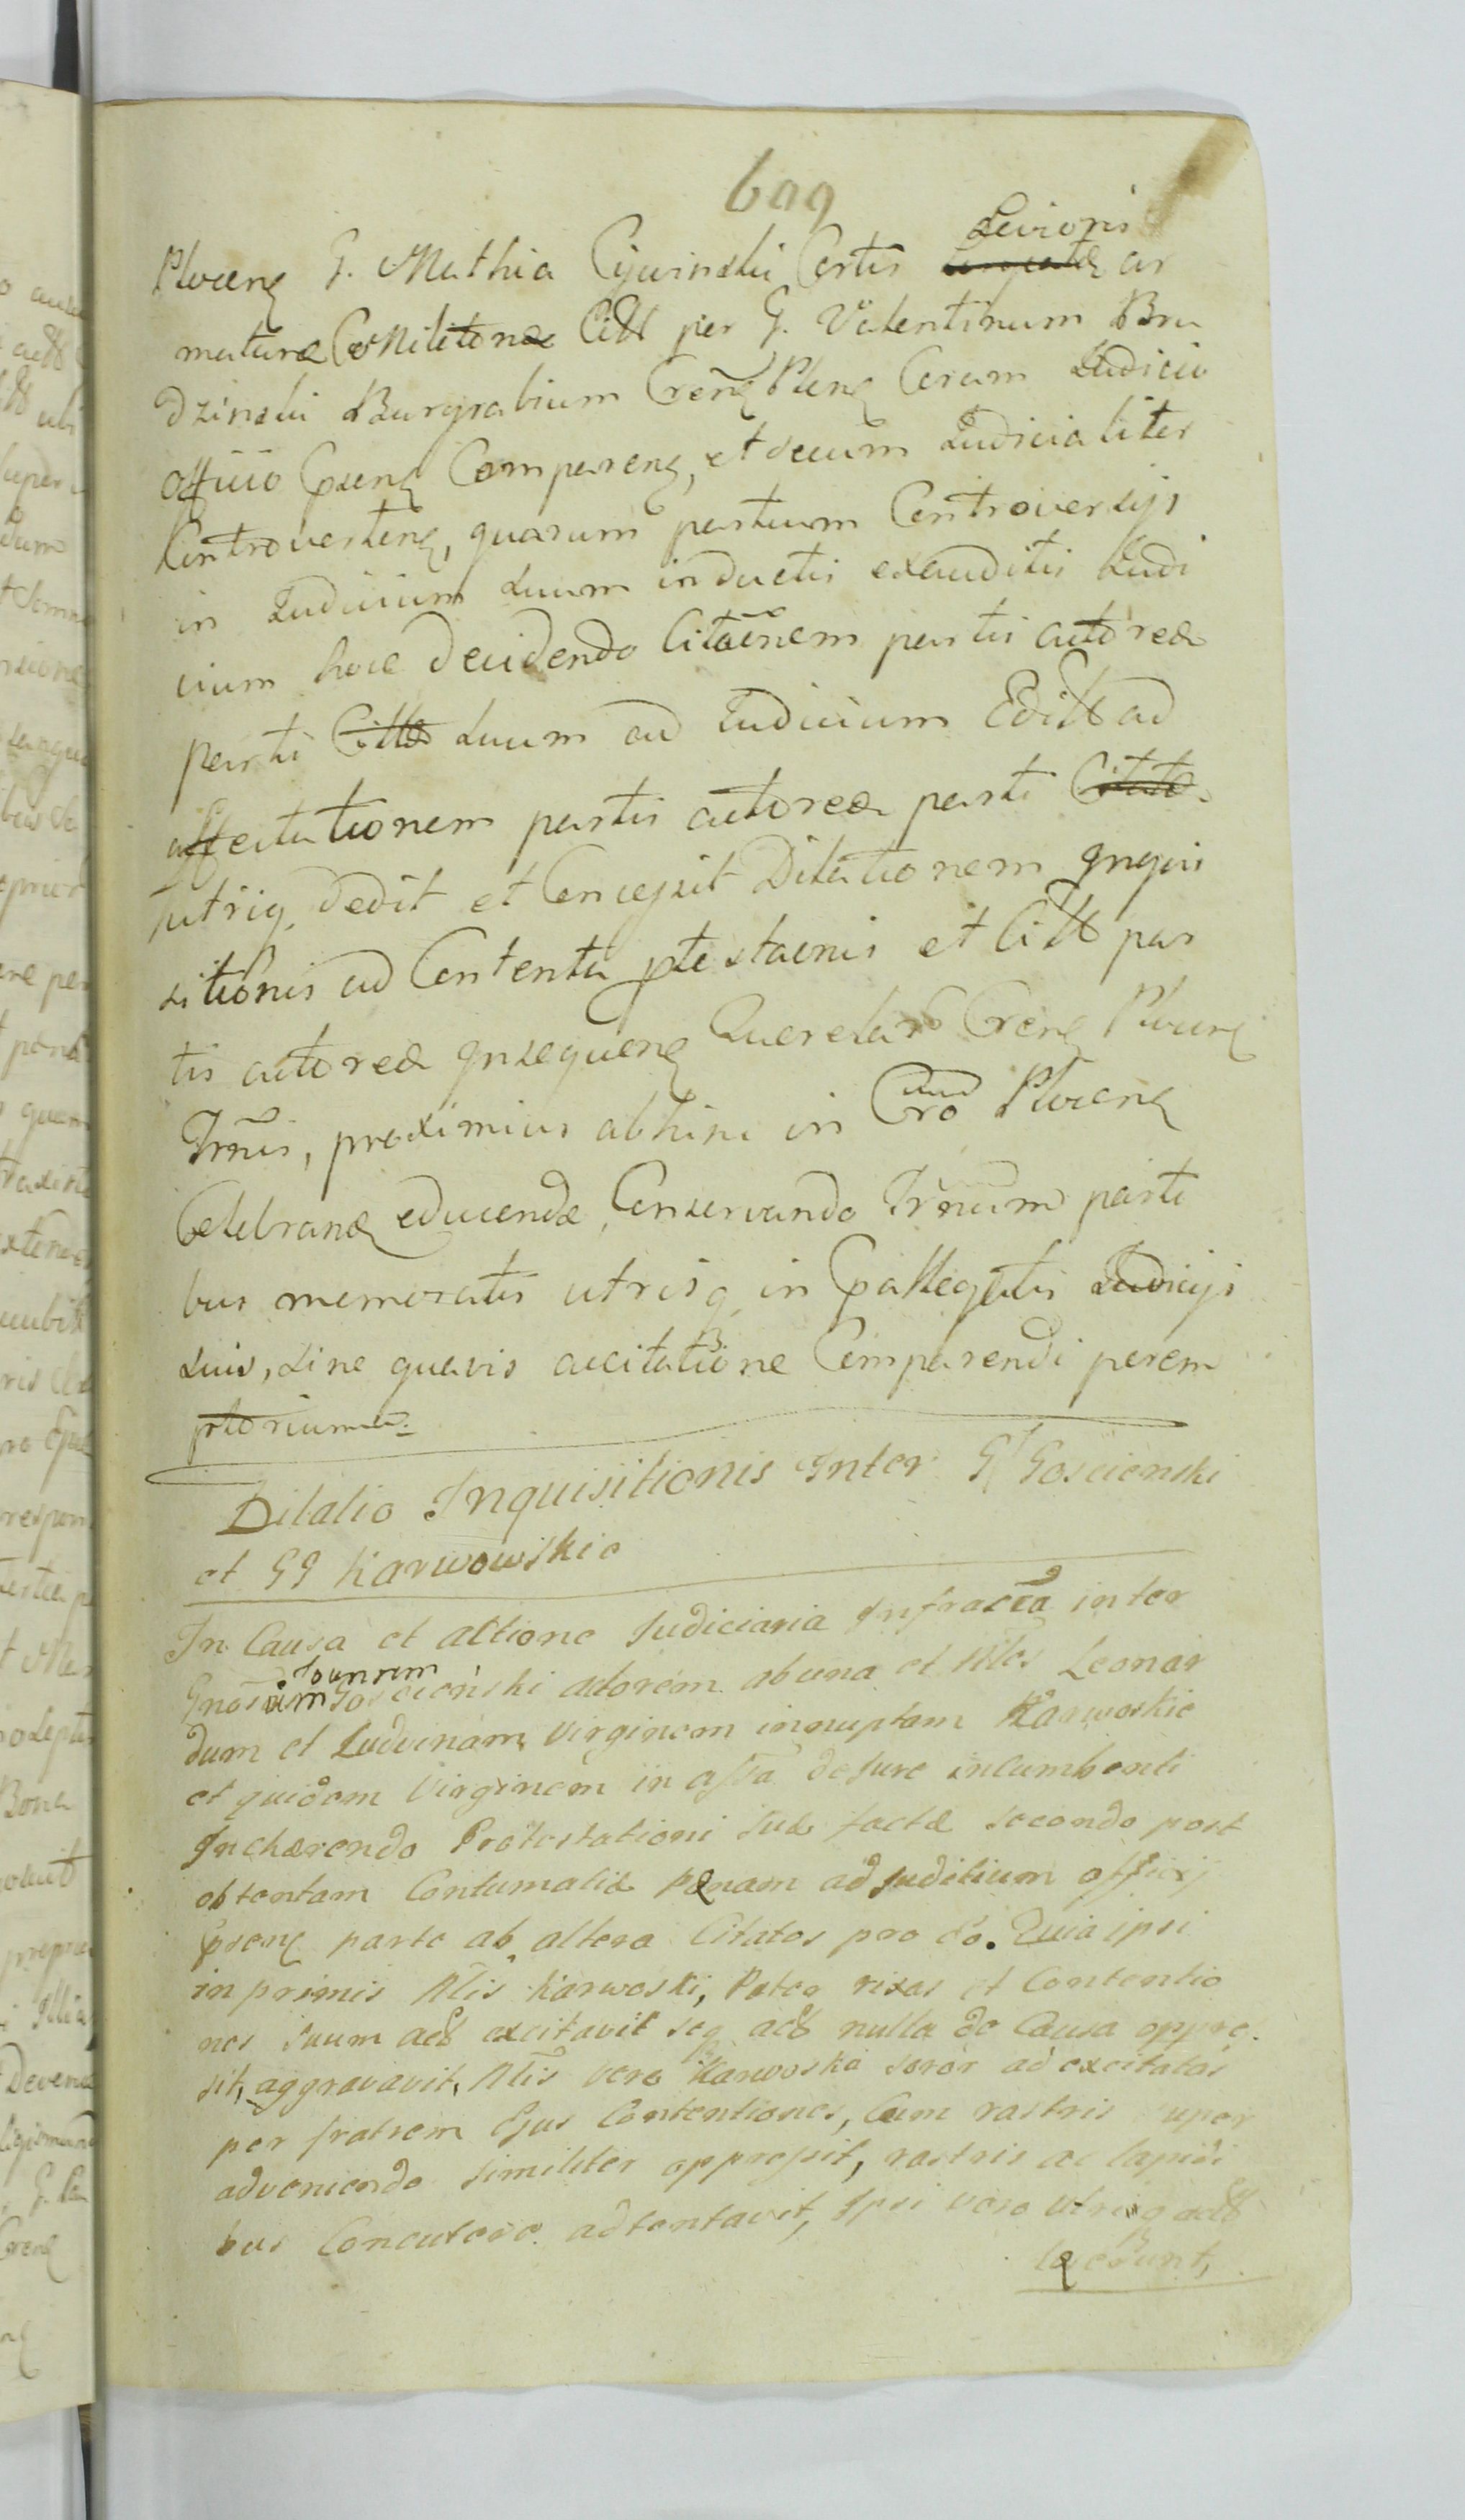 609
Levioris
Plocens G. Mathia Cywinski Cortis ar
maturæ Co Militone Citt per G. Valentinum Bru
dzinski Burgrabium Crens Plens Coram Judicio
officio Cpsens Comparens, et secum Judicialiter
Controvertens, quarum partium Controversijs
in Judicium suum inductis exauditis Judi
cium hoce decidendo Citaönem partis actoreæ
parti Cittæ suum ad Judicium Editt ad
affectationem partis actoreæ parti
utriq, dedit et Concessit Dilationem Inqui
sitionis ad Contenta ptestaonis et Citt par
tis actoreæ Insequens Querelar Crens Plocens
Trmis, proximius abhinc in Cro Plocens
Celebrans educendæ, Conservando Trminum parti
bus memoratis utrisq in Cpallegatis Judicijs
suis, sine quavis accitatione Comparendi perem
ptorium.
Dilatio Inquisitionis Inter G Goscienski
et GG Karwowskie
In Causa et actione Judiciaria Infracta inter
Joannem
Gnosum Goscienski actorem ab una et Nles Leonar
dum et Ludvinam Virginem innuptam Karwoskie
et quidem Virginem in assa de Jure incumbenti
Inchærendo Protestationi suæ factæ secundo post
obtentam Contumatiæ Pænam ad Juditium officij
psens parte ab altera Citatos pro eo. Quia ipsi
in primis Nlis Karwoski, Pater rixas et Contentio
nes suum act excitavit seq act nulla de Causa oppres
sit, aggravavit, Nlis vero Karwoska soror ad excitatas
per fratrem Ejus Contentiones, Cum rastris super
adveniendo similiter oppressit, rastris ac lapidi
bus Concutere adtentavit, Ipsi vero utriq act
læserunt,